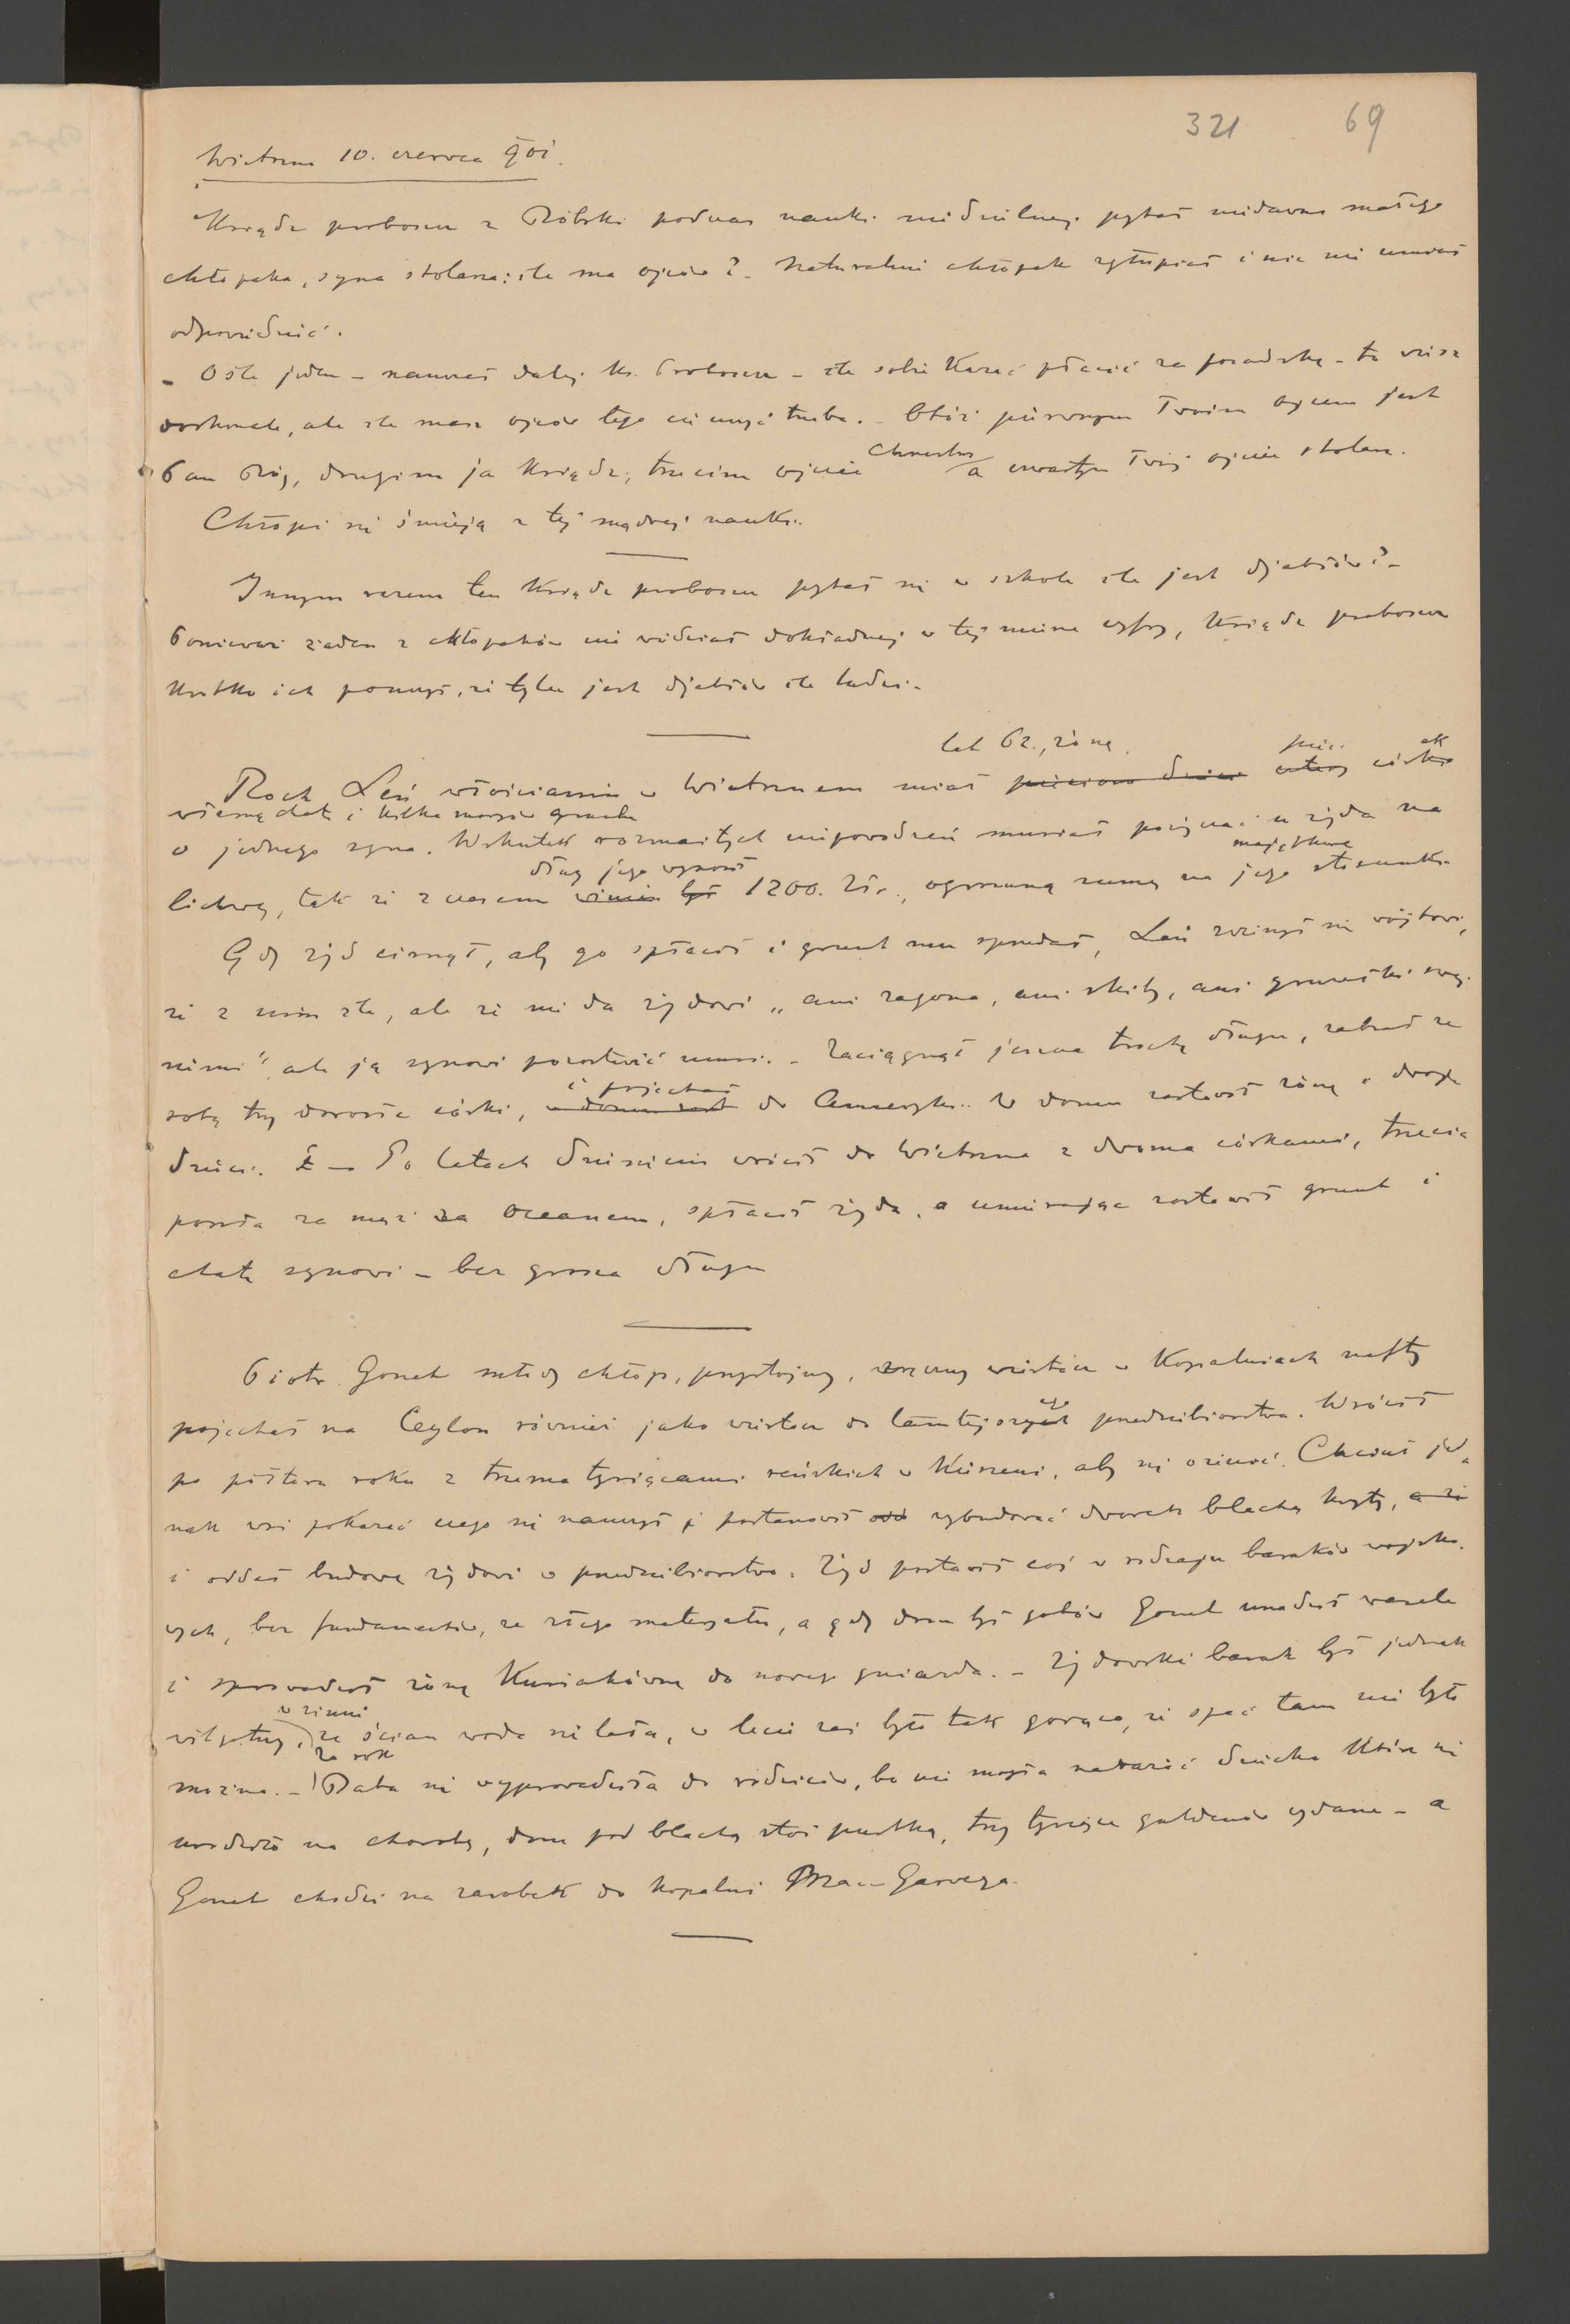 321 69
Wietrzno 10. czerwca 901.
Ksiądz proboszcz z Bóbrki podczas nauki niedzielnej pytał niedawno małego
chłopaka, syna stolarza: ile ma ojców? – Naturalnie chłopak zgłupiał i nic nie umiał
odpowiedzieć.
– Ośle jeden – nauczał dalej ks. Proboszcz – ile sobie kazać płacić za posadzkę – to wiesz
doskonale, ale ile masz ojców tego cię uczyć trzeba. – Otóż pierwszym Twoim ojcem jest
Pan Bóg, drugim ja ksiądz, trzecim ojciec chrzestny a czwartym Twój ojciec stolarz.
Chłopi się śmieją z tej mądrej nauki.
Innym razem ten ksiądz proboszcz pytał się w szkole ile jest djabłów? –
Ponieważ żaden z chłopaków nie wiedział dokładnej w tej mierze cyfry, ksiądz proboszcz
krótko ich pouczył, że tylu jest djabłów ile ludzi.
lat 62., żonę, pięć ek
Roch Leń włościanin w Wietrznem miał pięcioro dzieci cztery córki
własną chatę i kilka morgów gruntu
o jednego syna. Wskutek rozmaitych niepowodzeń musiał pożyczać u żyda na
dług jego wynosił majątkowe
lichwę, tak że z czasem winien był 1200. Złr., ogromną sumę na jego stosunki.
Gdy żyd cisnął, aby go spłacił i grunt mu sprzedał, Leń zwierzył się wójtowi,
że z nim źle, ale że nie da żydowi „ani zagona, ani skiby, ani grudki swej
ziemi" ale ją synowi pozostawić musi. – Zaciągnął jeszcze trochę długu, zabrał ze
i pojechał
sobą trzy dorosłe córki, do Ameryki. W domu zostawił żonę i dwoje
dzieci. – Po latach dziesięciu wrócił do Wietrzna z dwoma córkami, trzecia
poszła za mąż za Oceanem, spłacił żyda, a umierając zostawił grunt i
chatę synowi – bez grosza długu
Piotr Gonet młody chłop, przystojny, wiertacz w kopalniach nafty
pojechał na Ceylon również jako wiertacz do tamtejszych ego przedsiebiorstwa. Wrócił
po półtora roku z trzema tysiącami reńskich w kieszeni, aby się ożenić. Chciał jed-
nak wsi pokazać czego się nauczył i postanowił wybudować dworek blachą kryty, a że
i oddał budowę żydowi w przedsiebiorstwo. Żyd postawił coś w rodzaju baraków wojsko-
wych, bez fundamentów, ze złego materyału, a gdy dom był gotów Gonet urządził wesele
i sprowadził żonę Kusiakównę do nowego gniazda. – Żydowski barak był jednak
w zimie
wilgotny, ze ścian woda się lała, w lecie zaś było tak gorąco, że spać tam nie było
za rok
można. – Baba się wyprowadziła do rodziców, bo nie mogła narazić dziecka które się
urodziło na choroby, dom pod blachą stoi pustką, trzy tysiące guldenów wydane – a
Gonet chodzi na zarobek do kopalni Mac-Garveya.